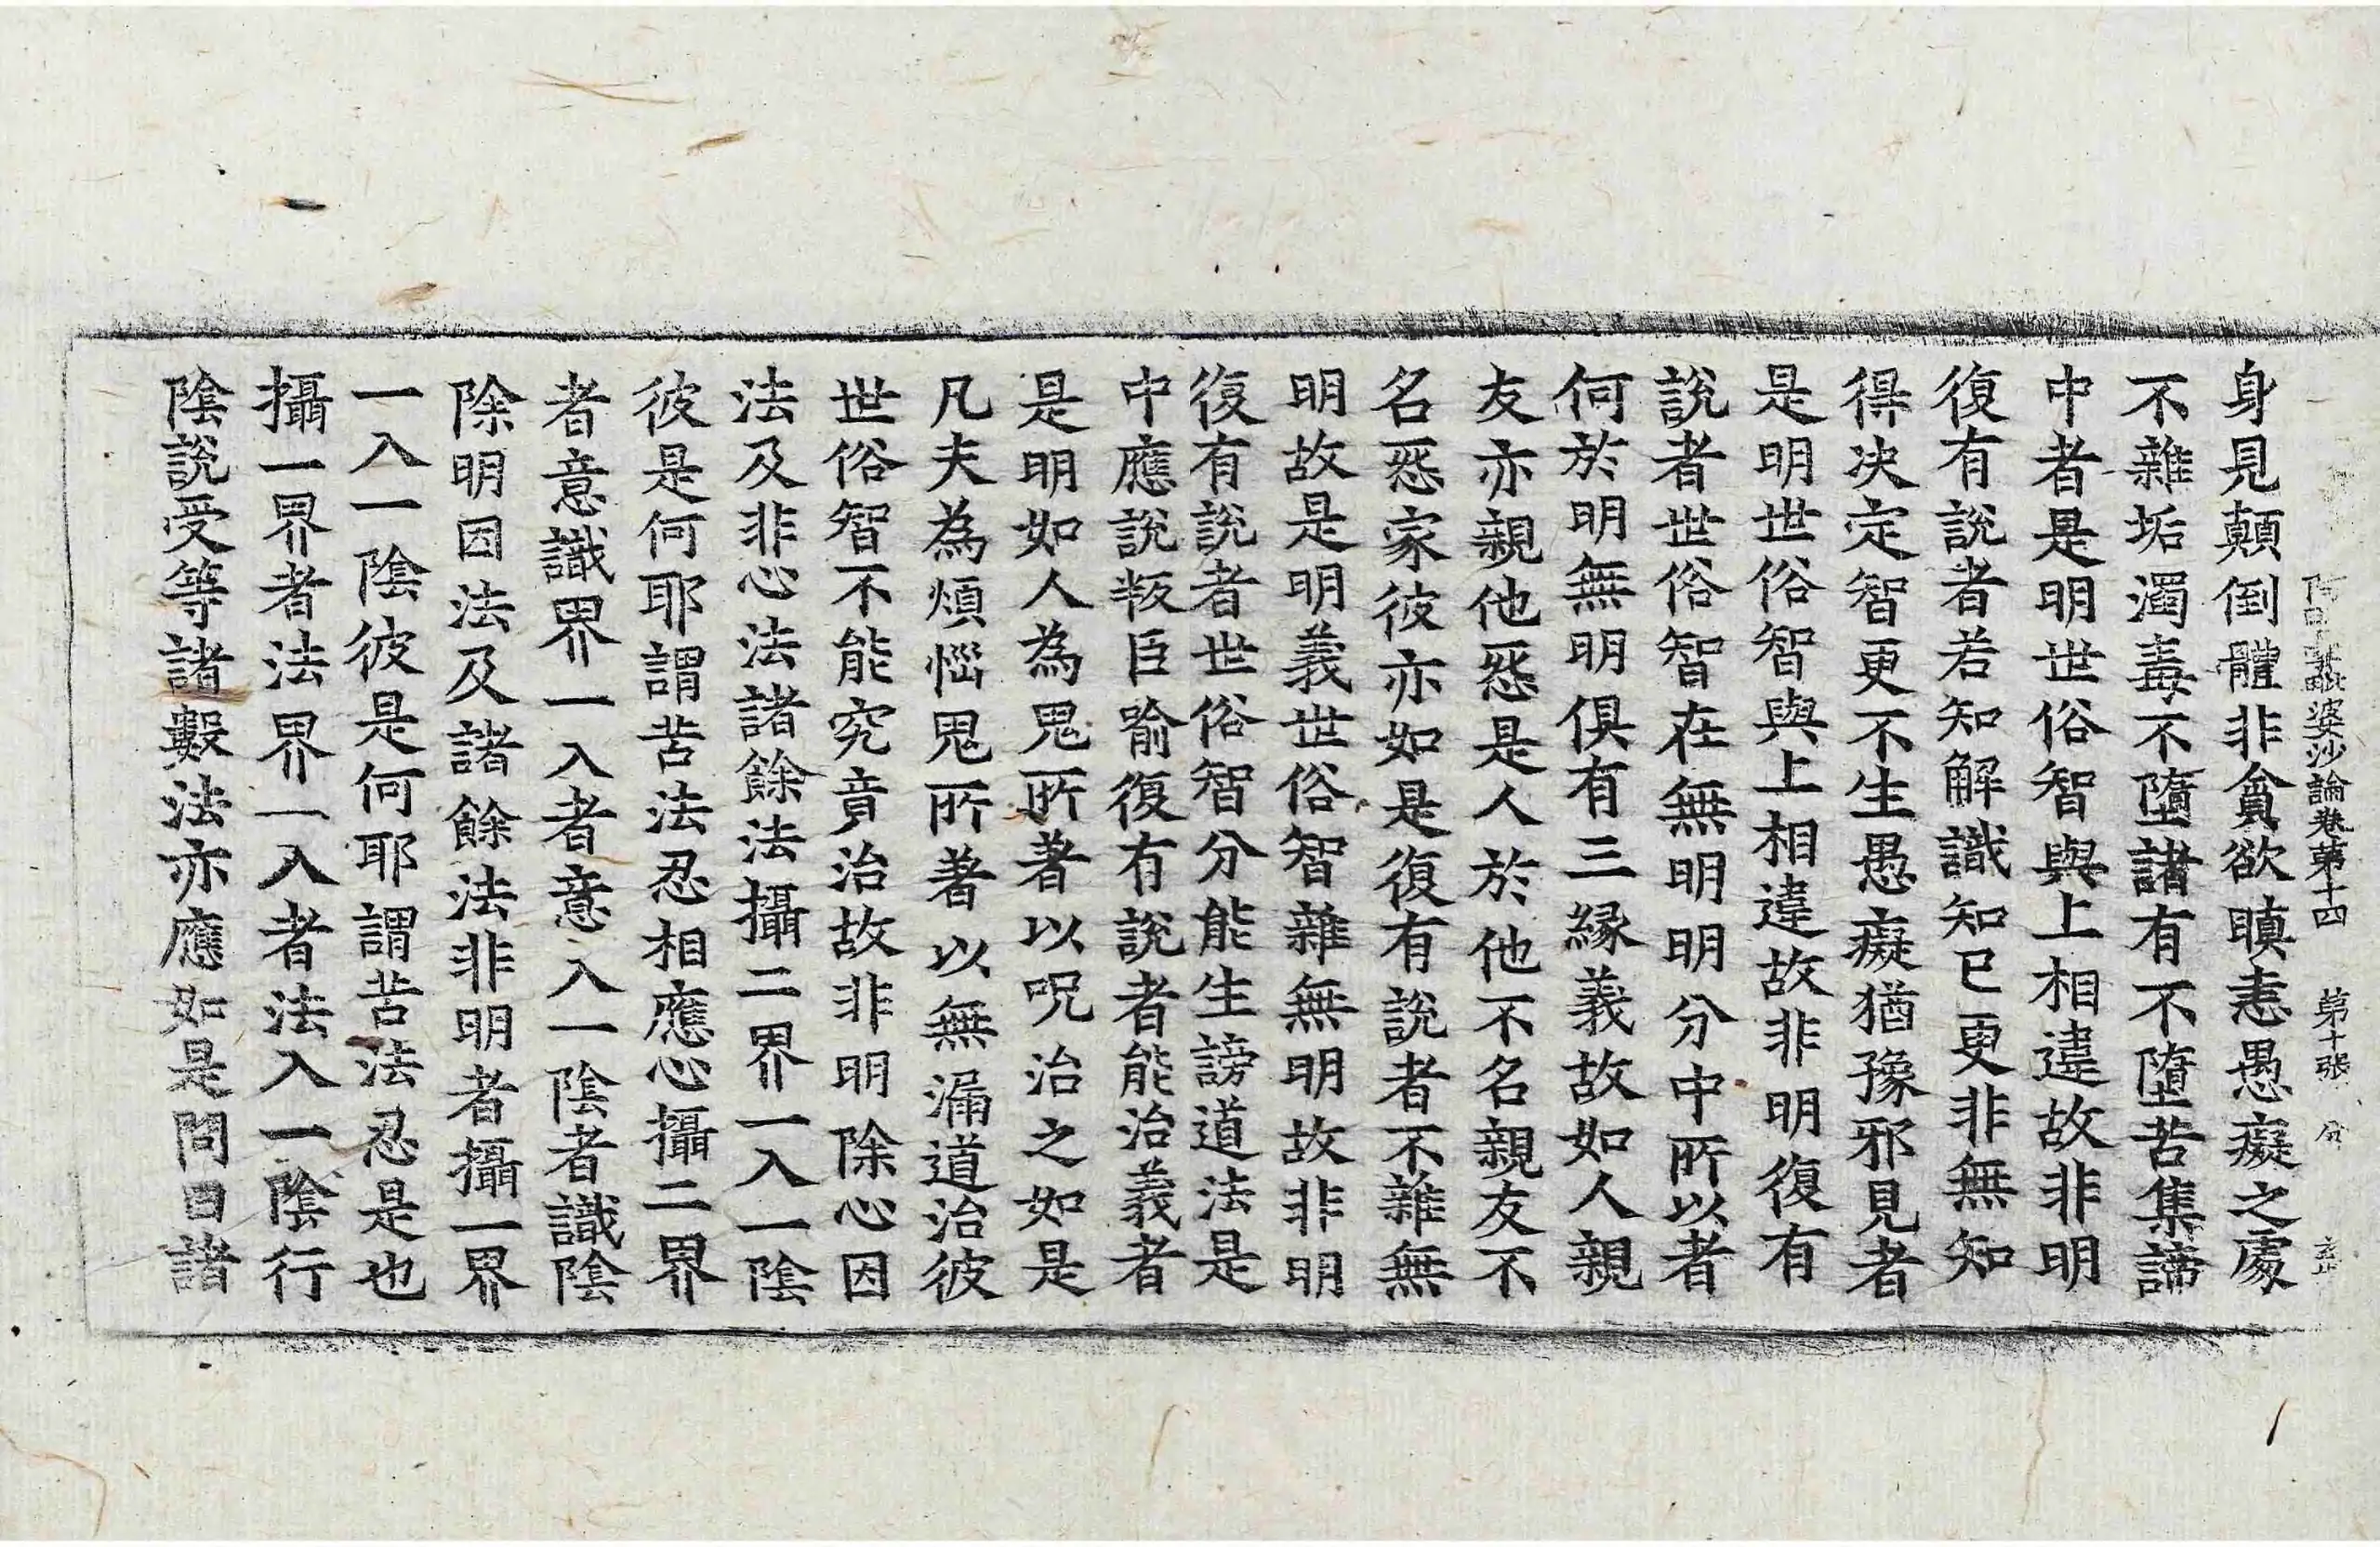 阿毗曇毗婆沙論卷第十四 第十張 分
身見顛倒體非貪欲瞋恚愚癡之處
不雜垢濁毒不墮諸有不墮苦集諦
中者是明世俗智與上相違故非明
復有說者若知解識知已更非無知
得决定智更不生愚癡猶豫邪見者
是明世俗智與上相違故非明復有
說者世俗智在無明明分中所以者
何於明無明俱有三緣義故如人親
友亦親他惡是人於他不名親友不
名惡家彼亦如是復有說者不雜無
明故是明義世俗智雜無明故非明
復有說者世俗智分能生謗道法是
中應說叛臣喻復有說者能治義者
是明如人為鬼所著以呪治之如是
凡夫為煩惱鬼所著以無漏道治彼
世俗智不能究竟治故非明除心因
法及非心法諸餘法攝二界一入一陰
彼是何耶謂苦法忍相應心攝二界
者意識界一入者意入一陰者識陰
除明因法及諸餘法非明者攝一界
一入一陰彼是何耶謂苦法忍是也
攝一界者法界一入者法入一陰行
陰說受等諸數法亦應如是問曰諸